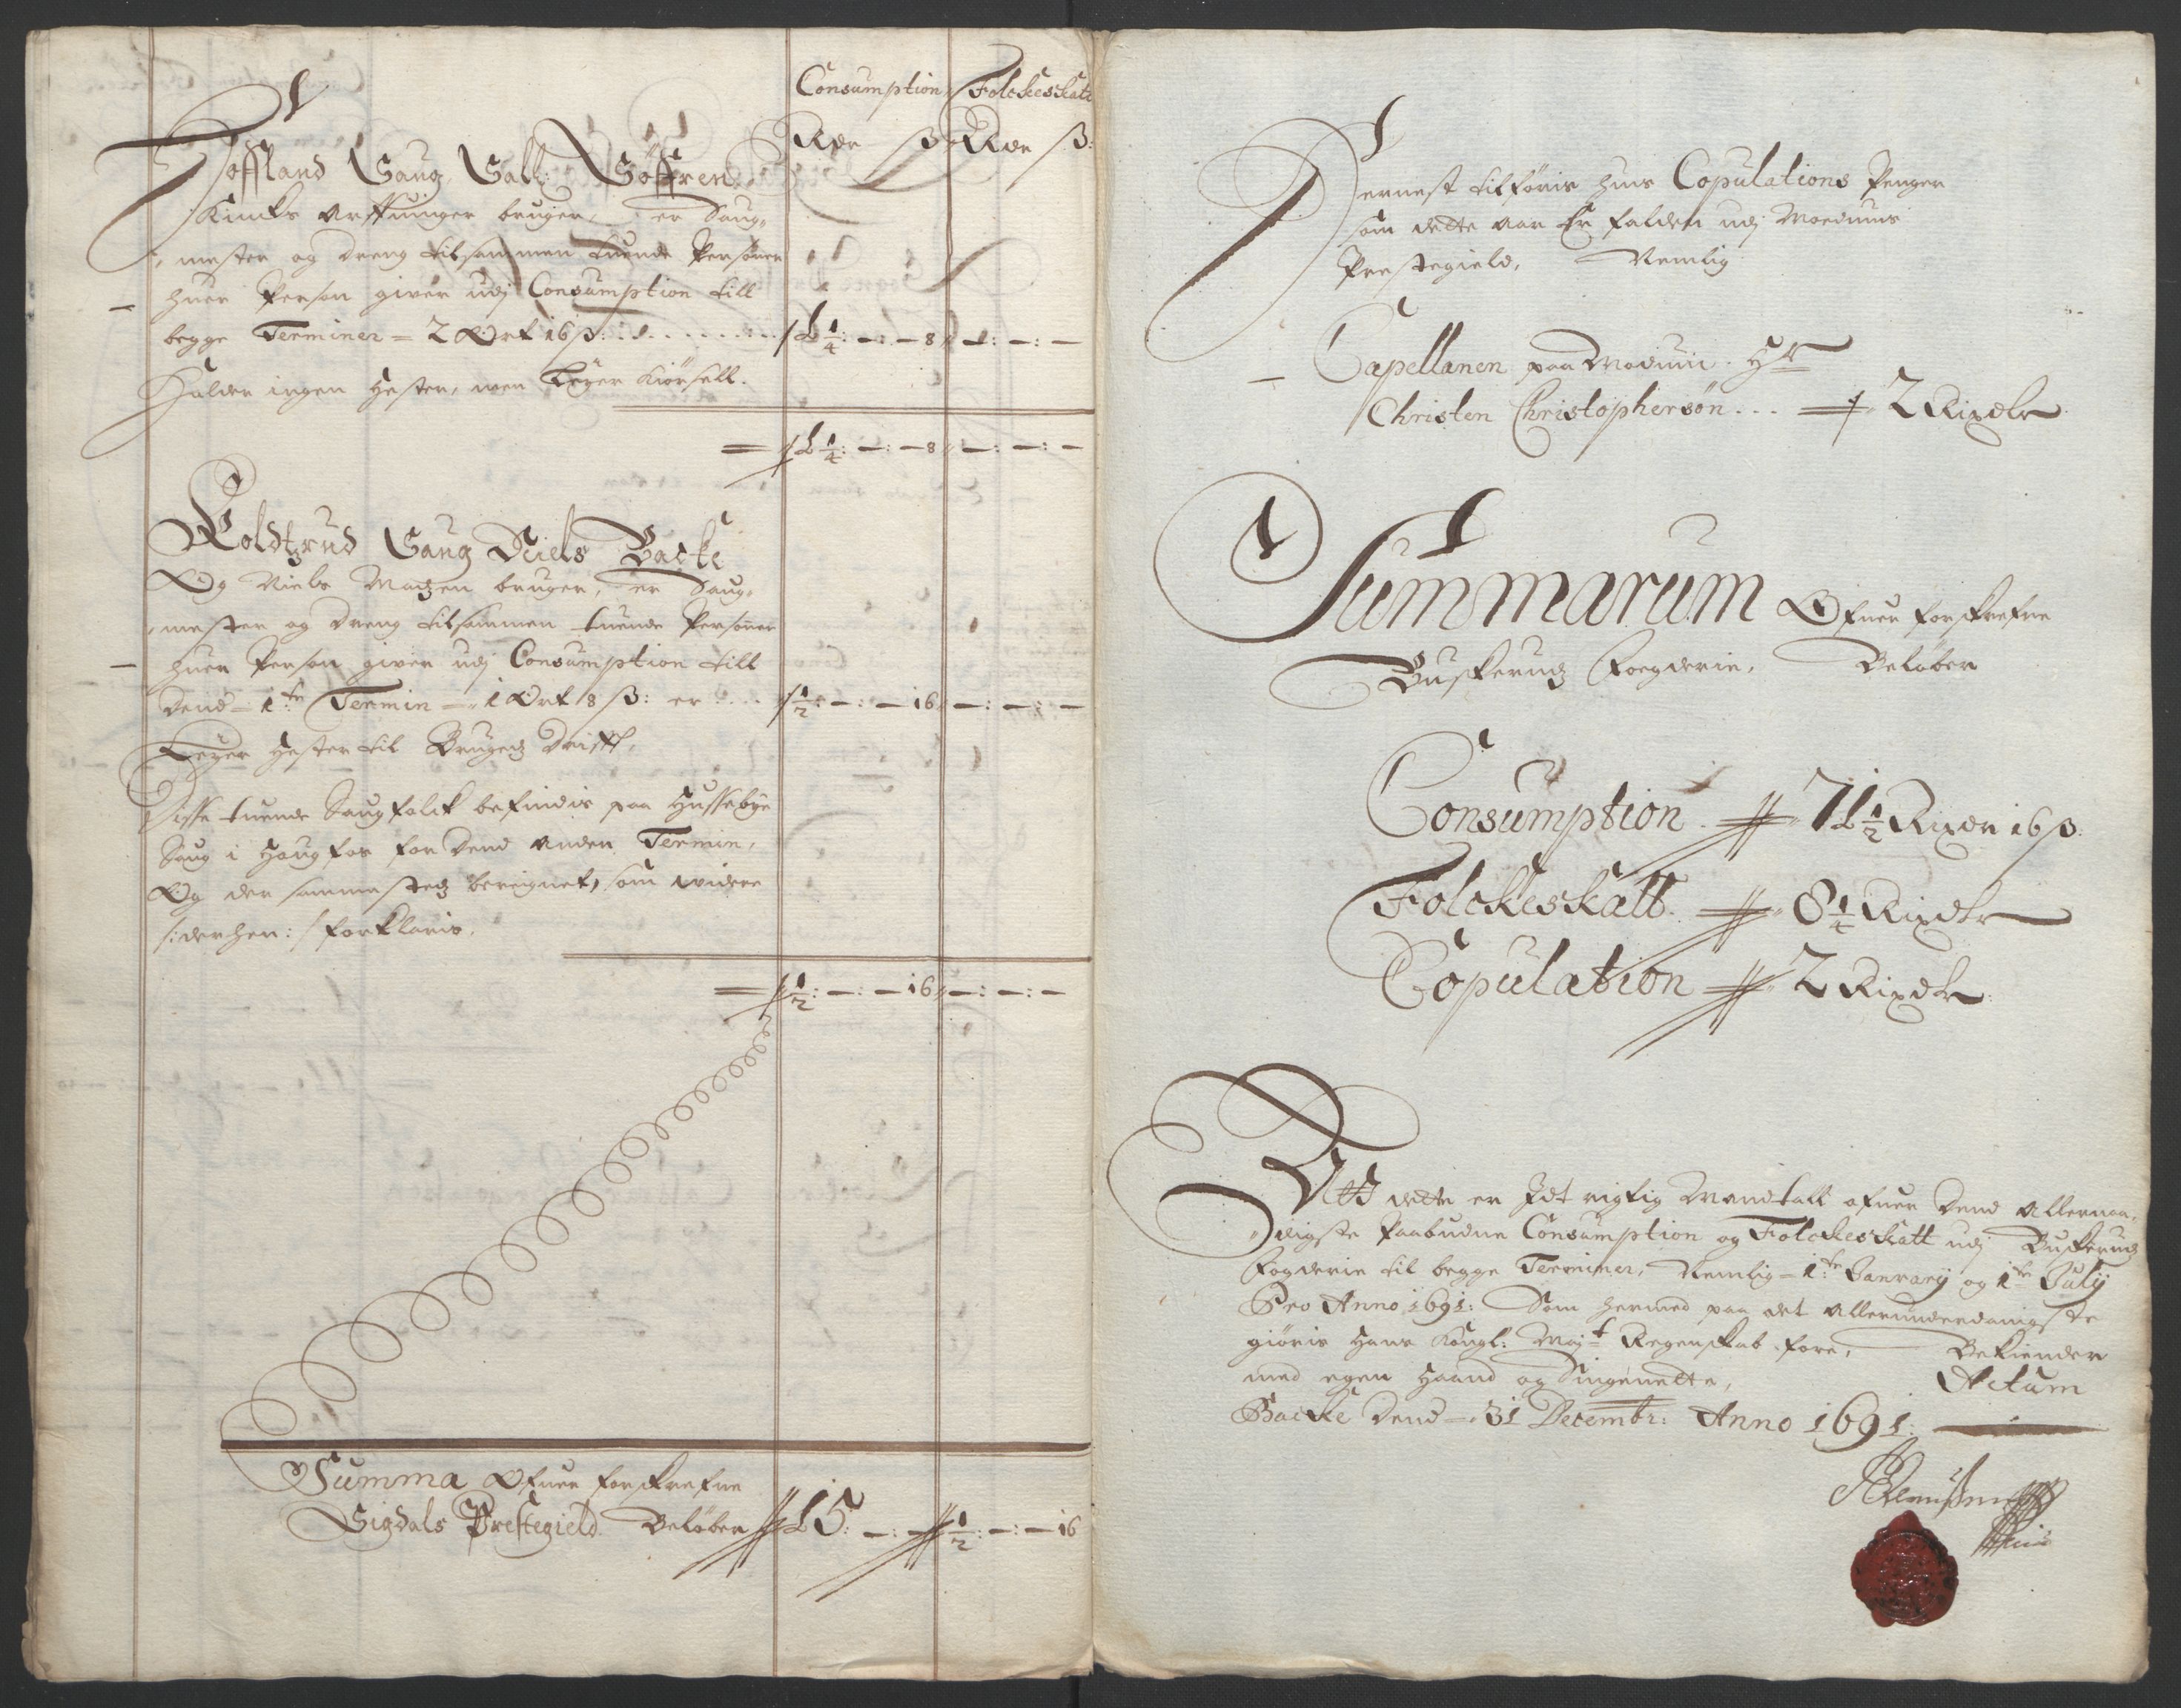 Consumption Folckeskatt
Rdr ß Rdr ß:
Toffland Saug Sall: Söffren
Kincks Arffuinger bruger, er Saug-
mester og Dreng tilsammen tuende Persöner
huer Person giver udj Consumption till
begge Terminer = 2 Ort 16 ß: 1 1/4: —: — 8 —: —: —
Holder ingen Hester, men Leyer Kiörsell.
1 1/4: —: — 8 —: —: —
Koldtzrud Saug Niels Backe
Og Niels Madzen bruger, er Saug-
mester og Dreng tilsammen tuende Persöner
huer Person giver udj Consumption till
Dend 1te Termin = 1 Ort 8 ß: er 1/2: —: — 16 —: —: —
Leyer Hester til Brugedz Drifft,
Disse tuende Saugfolck befindis paa Hussebye
Saug i Haugfos for Dend Anden Termin,
Og der sammestedz bereignet, som widere
/: derhen: / forklaris.
1/2: —: — 16 —: —: —
Summa Ofuer forskrefne
Sigdals Prestegield Belöber 15: —: — 1/2: —: — 16
Dernest tilföris huis Copulations Penger
som dette aar Er falden udj Modumbs
Prestegield, Nemlig
Capellanen paa Modum Hr
Christen Christophersön ... 2 Rixdlr
Summarum Ofuer forskrefne
Buskerudz Foegderie, Belöber
Consumption 71 1/2 Rixdr 16 ß:
Folckeskatt 8 1/4 Rixdlr
Copulation 2 Rixdlr
Att dette er Idt rigtig Mandtall ofuer Dend Allernaa-
digste Paabudne Consumption og Folckeskatt udj Buskerudz
Fogderie til begge Terminer, Nemlig 1te Janvary og 1te July
Pro Anno 1691: Som hermed paa det Allerunderdanigste
giöris Hans Kongl: Majt Regenskab fore, Bekiender
med egen Haand og Singenette, Actum
Backe Dend 31 Decembr: Anno 1691: